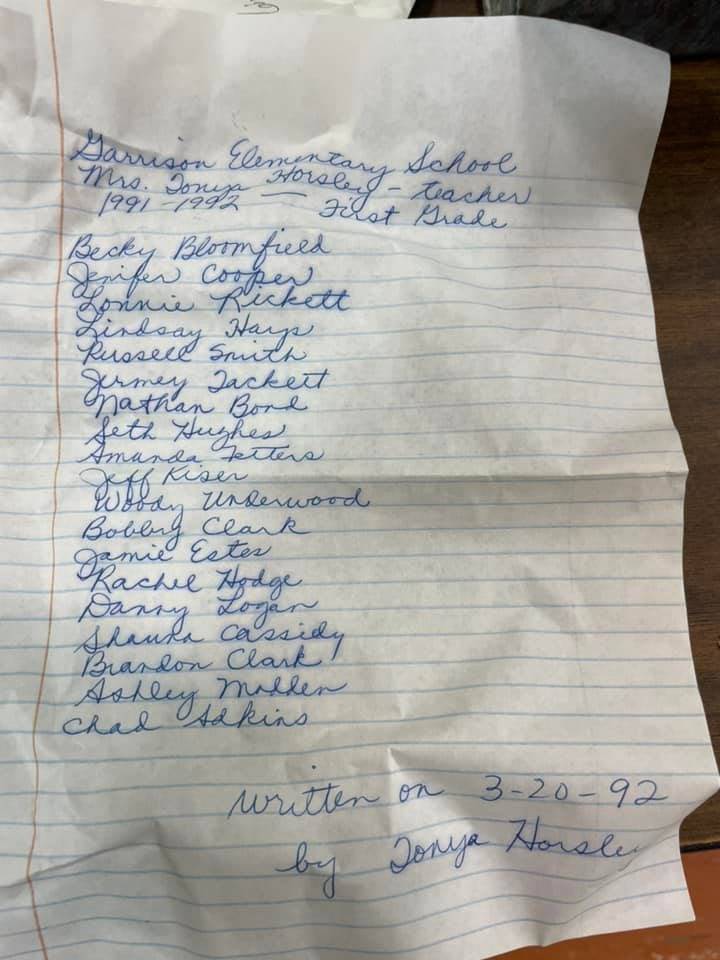 Garrison Elementary School
Mrs. Tonya Horsley - teacher
1991-1992 — First Grade
Becky Bloomfield
Jenifer Cooper
Lonnie Rickett
Lindsay Hays
Russell Smith
Jermey Tackett
Nathan Bond
Seth Hughes
Amanda Fetters
Jeff Kiser
Woody Underwood
Bobby Clark
Jamie Estes
Rachel Hodge
Danny Logan
Shauna Cassidy
Brandon Clark
Ashley Madden
Chad Adkins
written on 3-20-92
by Tonya Horsley